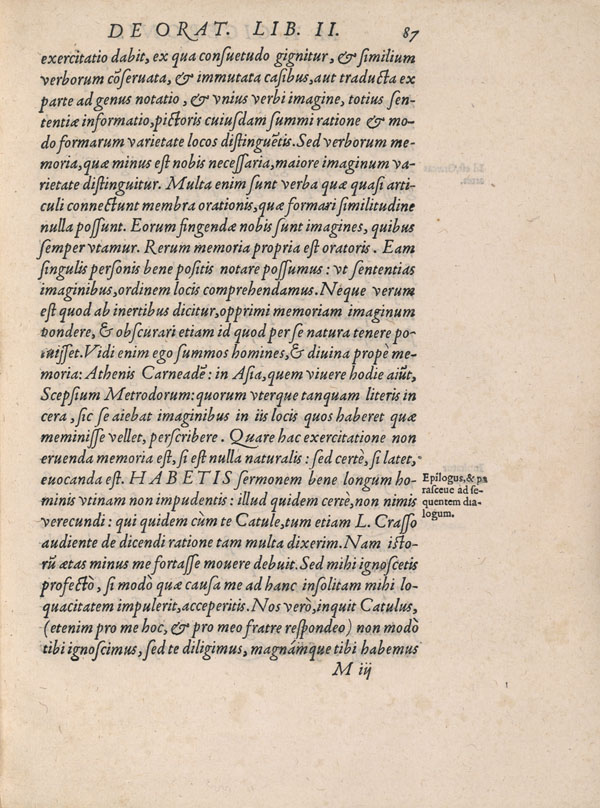 DE ORAT. LIB. II. 87
exercitatio dabit, ex qua consuetudo gignitur, & similium
verborum cõseruata, & immutata casibus, aut traducta ex
parte ad genus notatio, & vnius verbi imagine, totius sen-
tentiæ informatio, pictoris cuiusdam summi ratione & mo-
do formarum varietate locos distinguẽtis. Sed verborum me-
moria, quæ minus est nobis necessaria, maiore imaginum va-
rietate distinguitur. Multa enim sunt verba quæ quasi arti-
culi connectunt membra orationis, quæ formari similitudine
nulla possunt. Eorum fingendæ nobis sunt imagines, quibus
semper vtamur. Rerum memoria propria est oratoris. Eam
singulis personis bene positis notare possumus: vt sententias
imaginibus, ordinem locis comprehendamus. Neque verum
est quod ab inertibus dicitur, opprimi memoriam imaginum
pondere, & obscurari etiam id quod per se natura tenere po-
tuisset. Vidi enim ego summos homines, & diuina propè me-
moria: Athenis Carneadẽ: in Asia, quem viuere hodie aiũt,
Scepsium Metrodorum: quorum vterque tanquam literis in
cera, sic se aiebat imaginibus in iis locis quos haberet quæ
meminisse vellet, perscribere. Quare hac exercitatione non
eruenda memoria est, si est nulla naturalis: sed certè, si latet,
euocanda est. HABETIS sermonem bene longum ho-
minis vtinam non impudentis: illud quidem certè, non nimis
verecundi: qui quidem cùm te Catule, tum etiam L. Crasso
audiente de dicendi ratione tam multa dixerim. Nam isto-
rũ ætas minus me fortasse mouere debuit. Sed mihi ignoscetis
profectò, si modò quæ causa me ad hanc insolitam mihi lo-
quacitatem impulerit, acceperitis. Nos verò, inquit Catulus,
(etenim pro me hoc, & pro meo fratre respondeo) non modò
tibi ignoscimus, sed te diligimus, magnámque tibi habemus
M iij
Epilogus, & pa
rasceue ad se-
quentem dia-
logum.